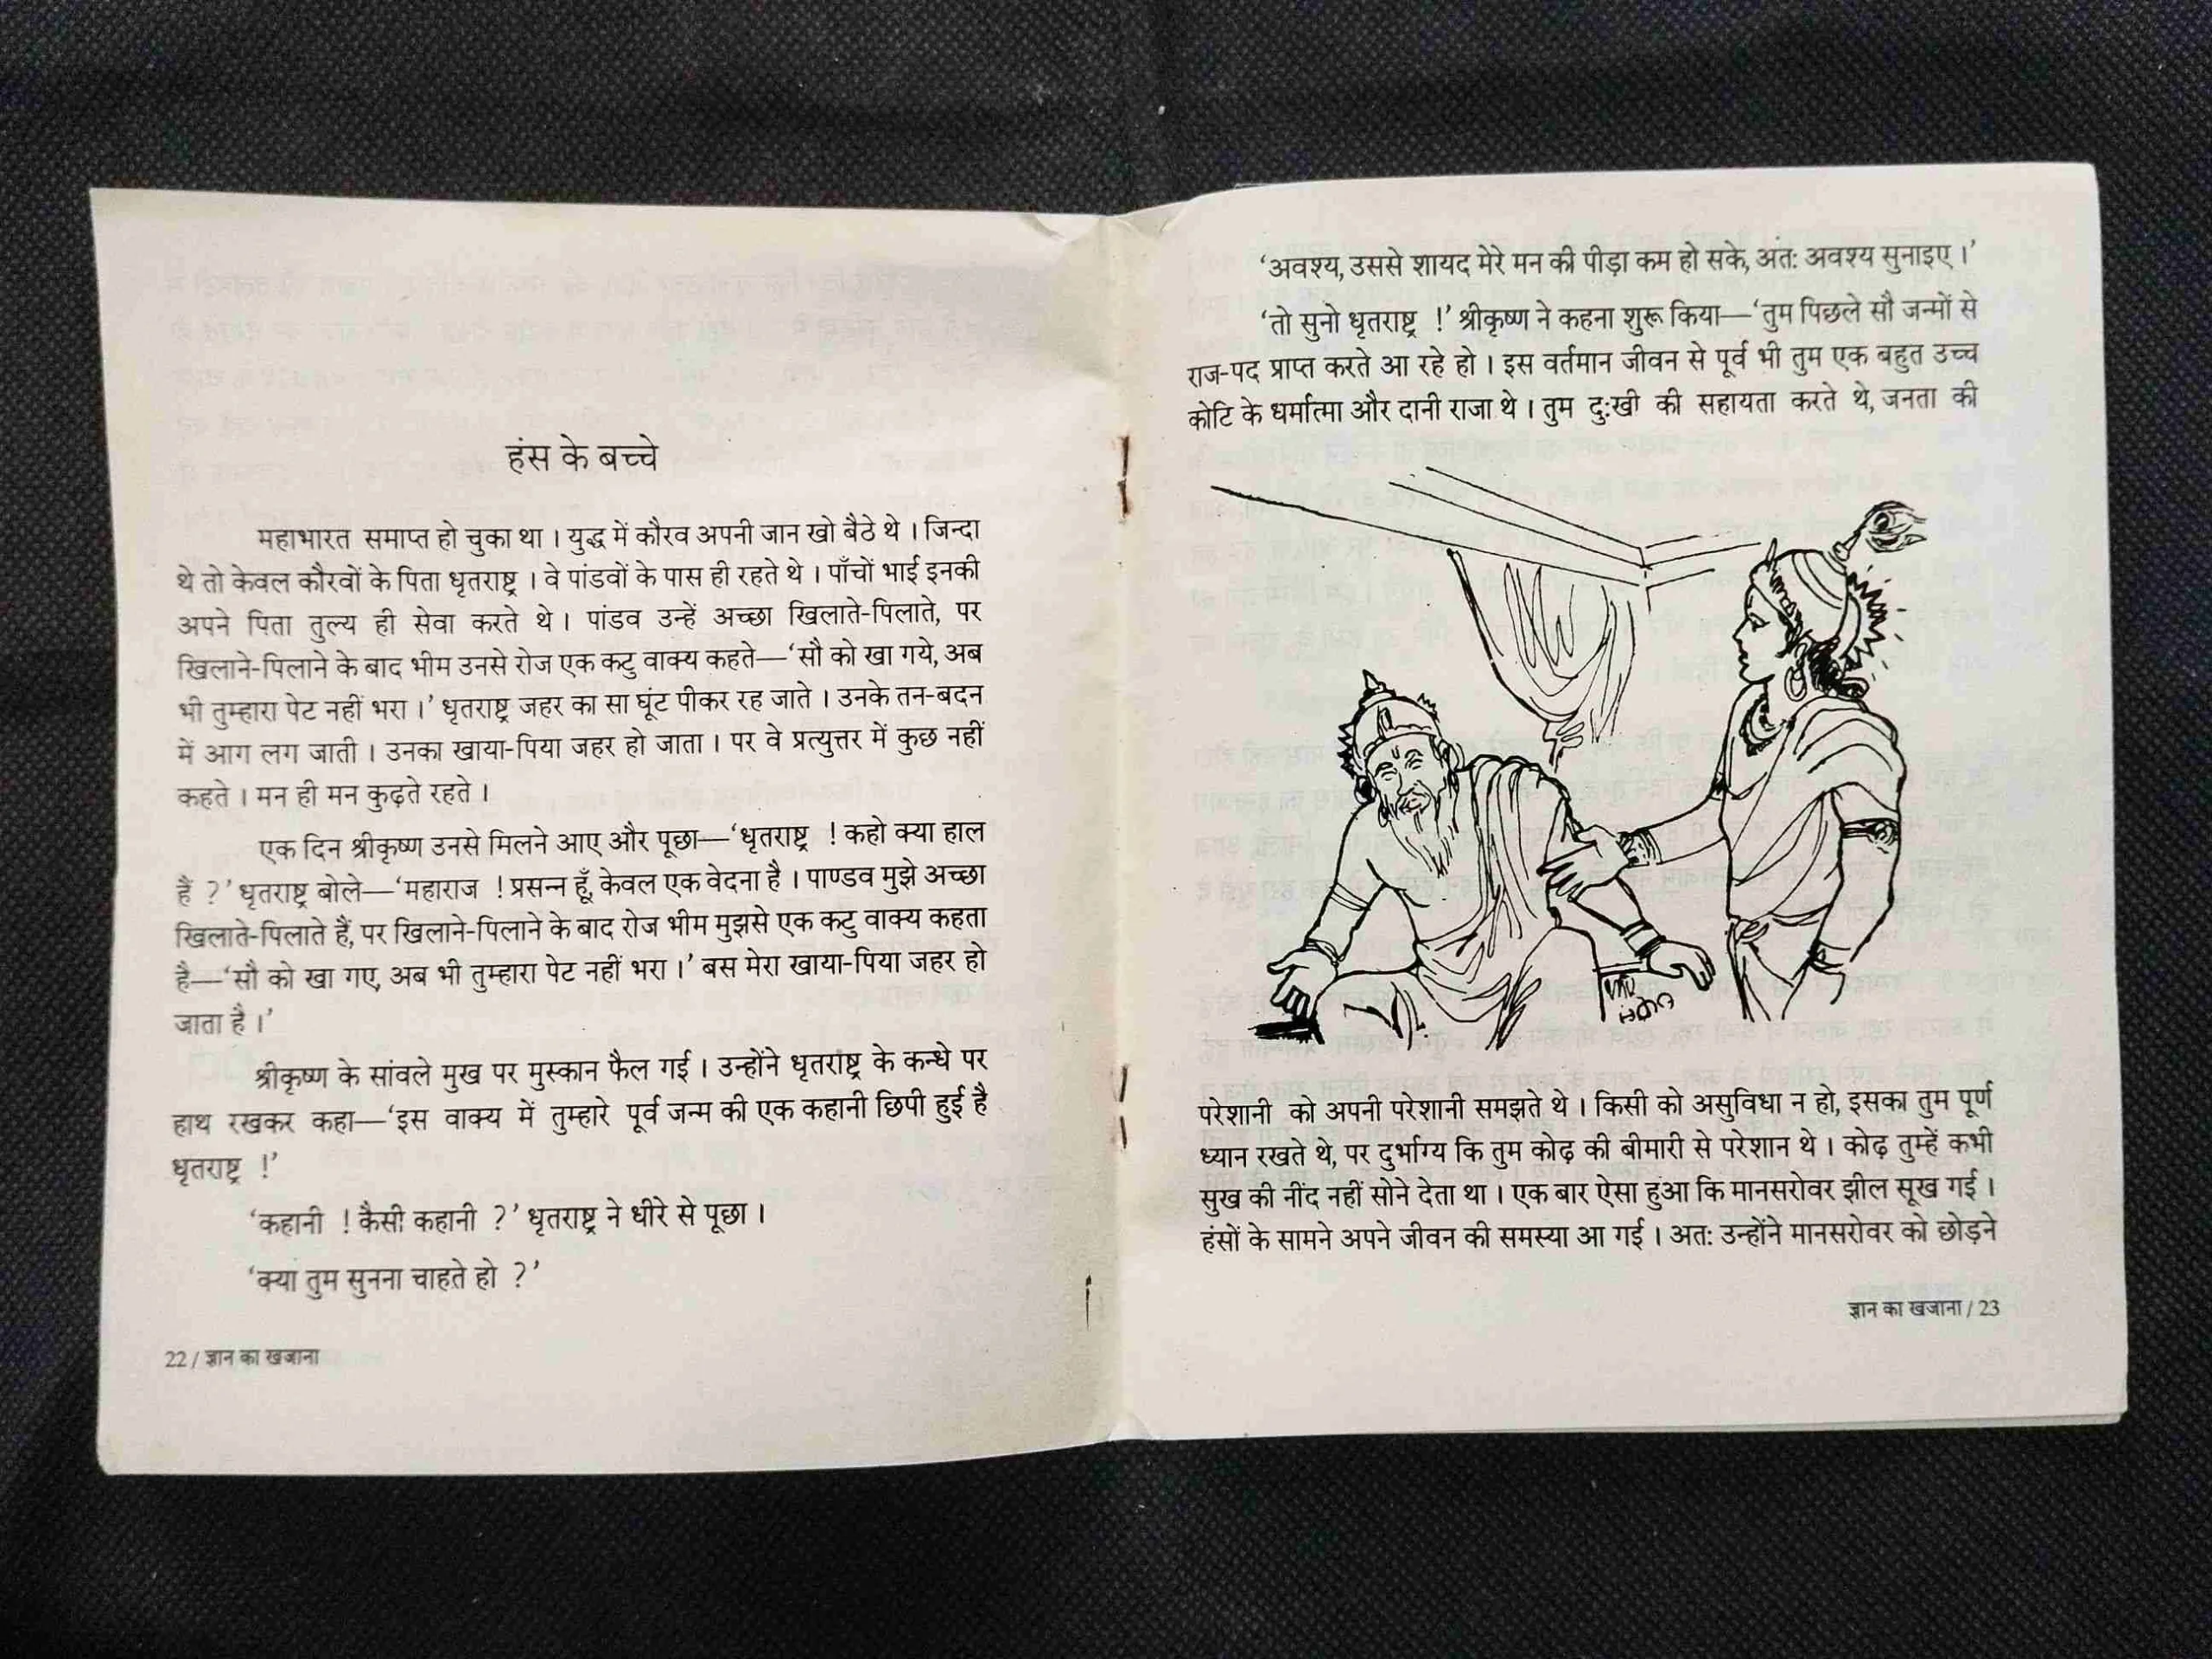 हंस के बच्चे
महाभारत समाप्त हो चुका था । युद्ध में कौरव अपनी जान खो बैठे थे । जिन्दा
थे तो केवल कौरवों के पिता धृतराष्ट्र । वे पांडवों के पास ही रहते थे । पाँचों भाई इनकी
अपने पिता तुल्य ही सेवा करते थे । पांडव उन्हें अच्छा खिलाते-पिलाते, पर
खिलाने-पिलाने के बाद भीम उनसे रोज एक कटु वाक्य कहते—‘सौ को खा गये, अब
भी तुम्हारा पेट नहीं भरा ।’ धृतराष्ट्र जहर का सा घूंट पीकर रह जाते । उनके तन-बदन
में आग लग जाती । उनका खाया-पिया जहर हो जाता । पर वे प्रत्युत्तर में कुछ नहीं
कहते । मन ही मन कुढ़ते रहते ।
एक दिन श्रीकृष्ण उनसे मिलने आए और पूछा—‘धृतराष्ट्र ! कहो क्या हाल
हैं ?’ धृतराष्ट्र बोले—‘महाराज ! प्रसन्न हूँ, केवल एक वेदना है । पाण्डव मुझे अच्छा
खिलाते-पिलाते हैं, पर खिलाने-पिलाने के बाद रोज भीम मुझसे एक कटु वाक्य कहता
है—‘सौ को खा गए, अब भी तुम्हारा पेट नहीं भरा ।’ बस मेरा खाया-पिया जहर हो
जाता है ।’
श्रीकृष्ण के सांवले मुख पर मुस्कान फैल गई । उन्होंने धृतराष्ट्र के कन्धे पर
हाथ रखकर कहा—‘इस वाक्य में तुम्हारे पूर्व जन्म की एक कहानी छिपी हुई है
धृतराष्ट्र !’
‘कहानी ! कैसी कहानी ?’ धृतराष्ट्र ने धीरे से पूछा ।
‘क्या तुम सुनना चाहते हो ?’
22 / ज्ञान का खजाना
‘अवश्य, उससे शायद मेरे मन की पीड़ा कम हो सके, अंतः अवश्य सुनाइए ।’
‘तो सुनो धृतराष्ट्र !’ श्रीकृष्ण ने कहना शुरू किया—‘तुम पिछले सौ जन्मों से
राज-पद प्राप्त करते आ रहे हो । इस वर्तमान जीवन से पूर्व भी तुम एक बहुत उच्च
कोटि के धर्मात्मा और दानी राजा थे । तुम दुःखी की सहायता करते थे, जनता की
परेशानी को अपनी परेशानी समझते थे । किसी को असुविधा न हो, इसका तुम पूर्ण
ध्यान रखते थे, पर दुर्भाग्य कि तुम कोढ़ की बीमारी से परेशान थे । कोढ़ तुम्हें कभी
सुख की नींद नहीं सोने देता था । एक बार ऐसा हुआ कि मानसरोवर झील सूख गई ।
हंसों के सामने अपने जीवन की समस्या आ गई । अतः उन्होंने मानसरोवर को छोड़ने
ज्ञान का खजाना / 23